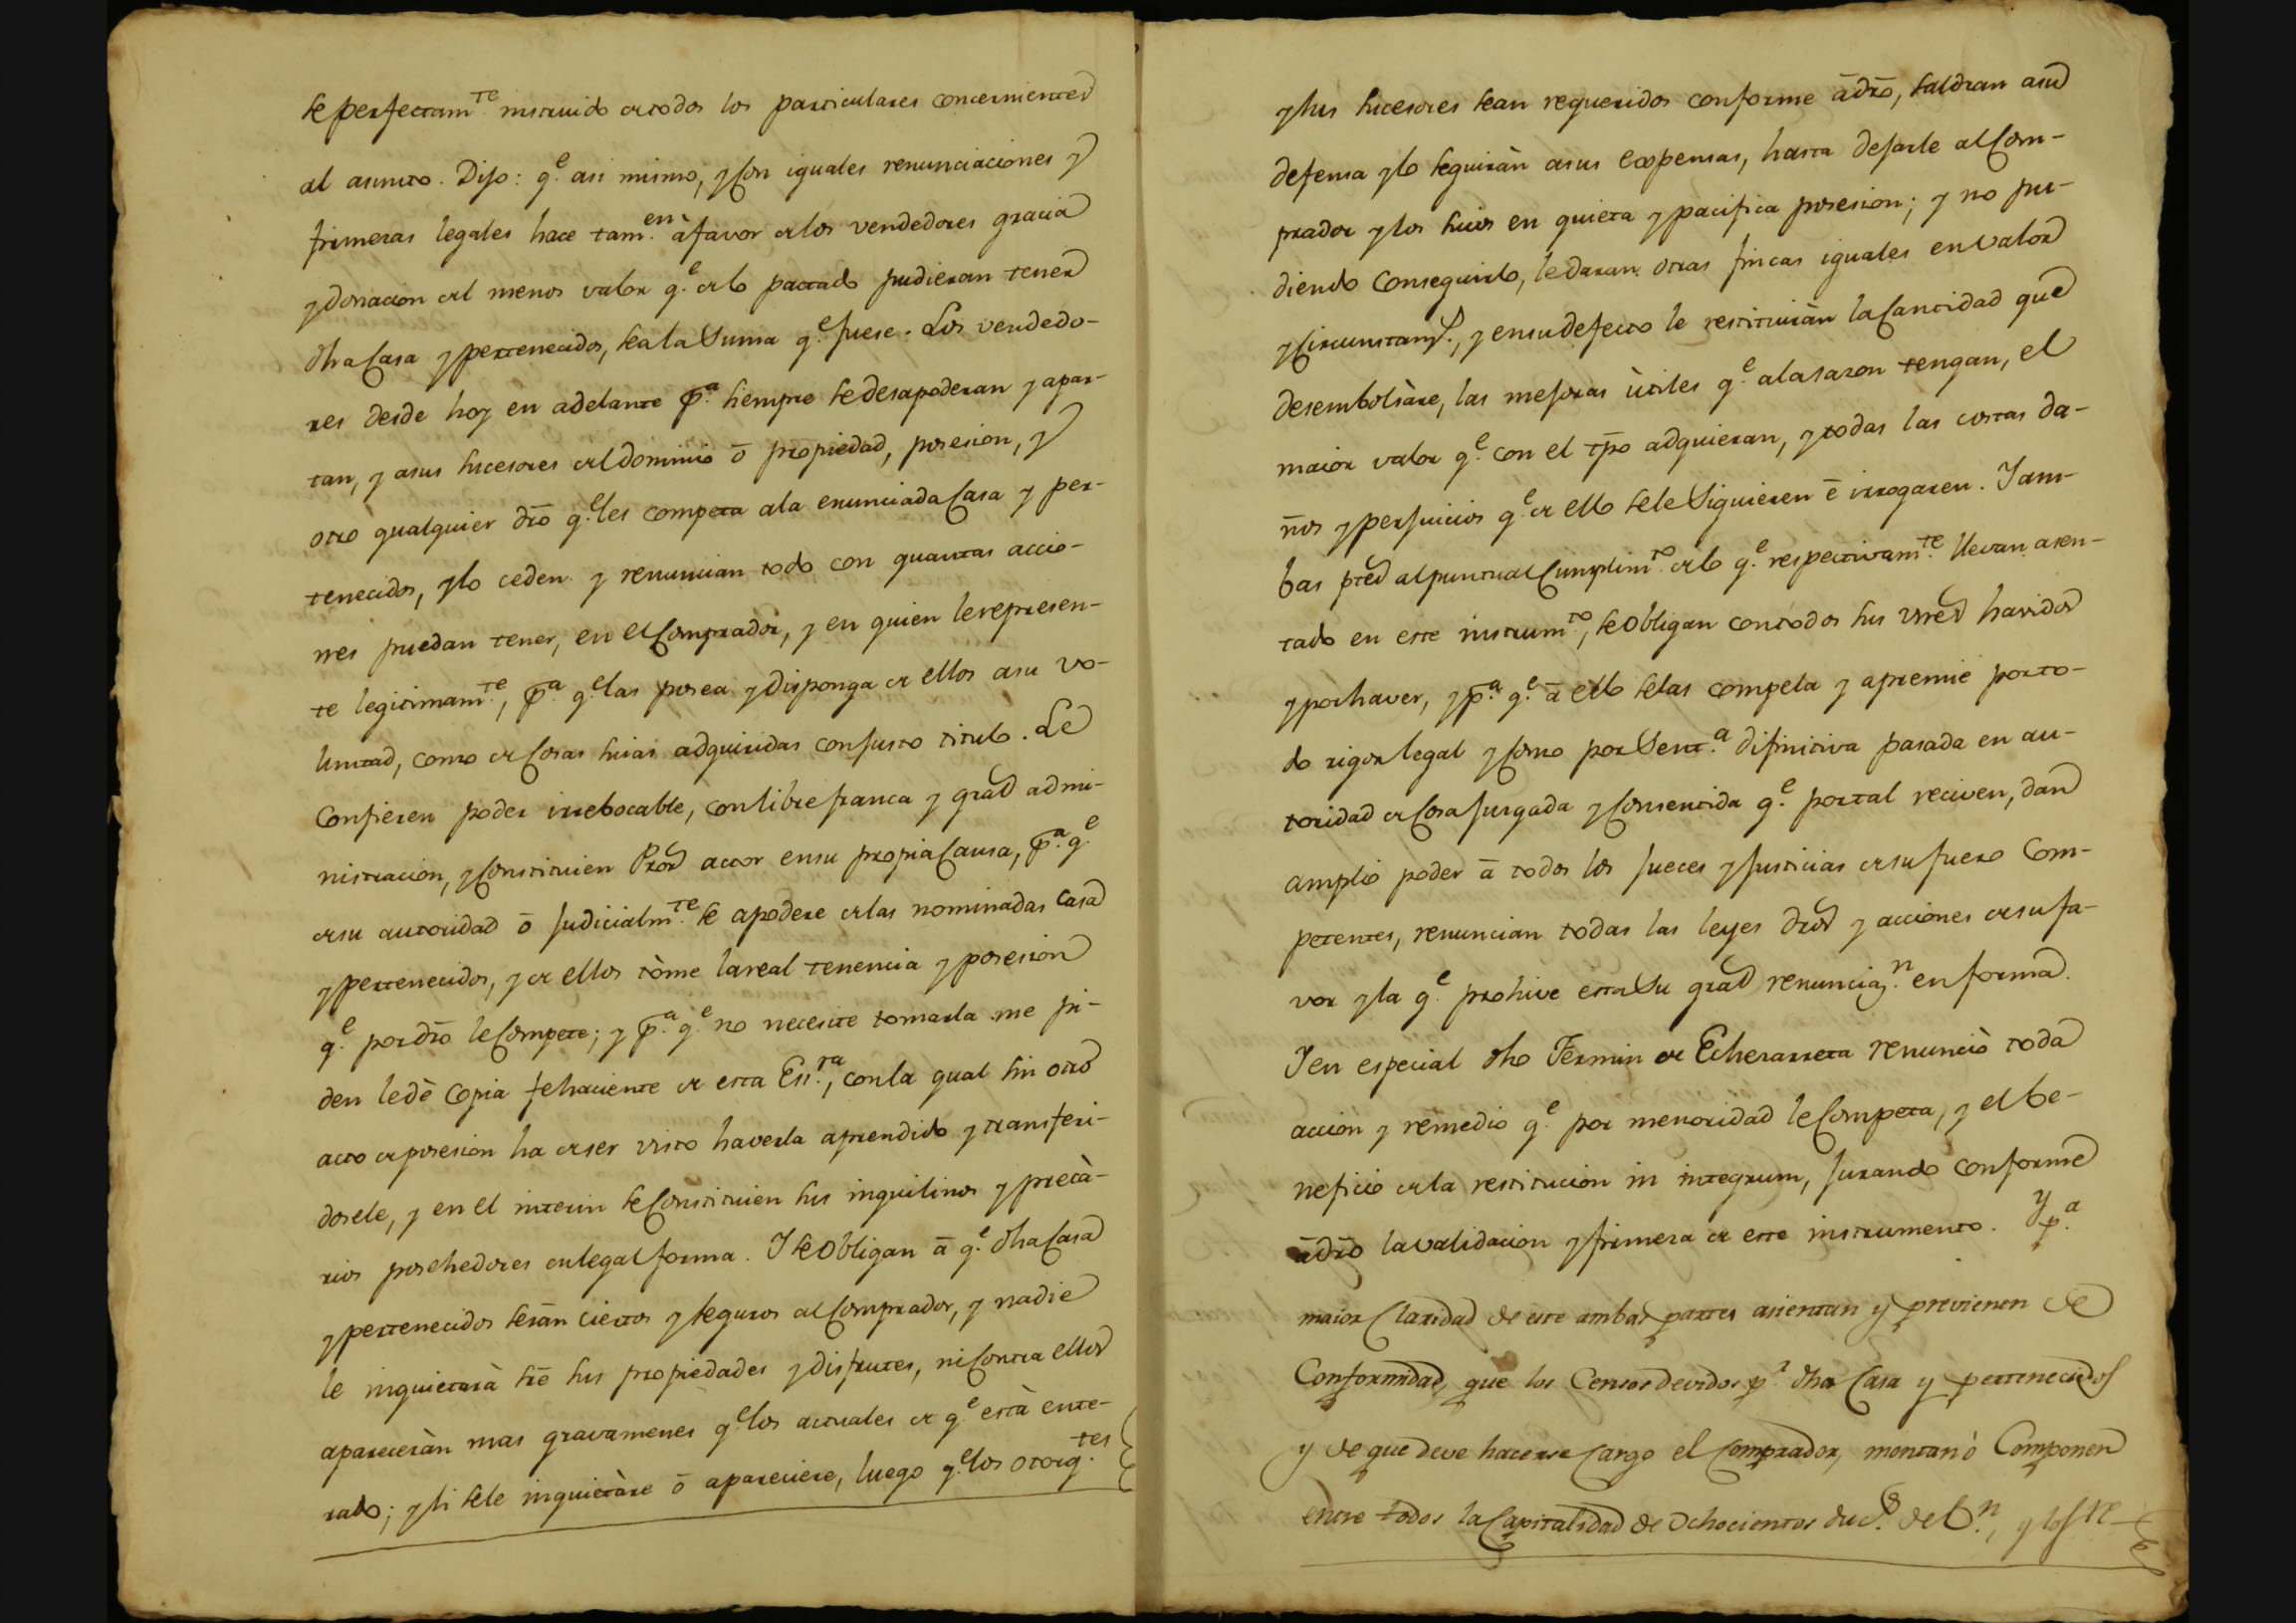 se perfectam.te instruido de todos los particulares concernientes
al asunto. Dijo: q.e asi mismo, y con iguales renunciaciones y
firmezas legales hace tam.en à favor de los vendedores gracia
y donacion del menos valor q.e de lo pactado pudieran tener
dha Casa y pertenecidos, sea la Suma q.e fuese. Los vendedo-
res desde hoy en adelante p.a siempre se desapoderan y apar-
tan, y a sus sucesores del dominio ō propiedad, posesion, y
otro qualquier dr̄o q.e les competa a la enunciada Casa y per-
tenecidos, y lo ceden y renuncian todo con quantas accio-
nes puedan tener, en el Comprador, y en quien le represen-
te legitimam.te, p.a q.e las posea y disponga de ellos a su vo-
luntad, como de Cosas suias adquiridas con justo titulo. Le
Confieren poder irrebocable, con libre franca y grãl admi-
nistracion, y Constituien Pror actor en su propia Causa, p.a q.e
de su autoridad ō judicialm.te se apodere de las nominadas Casa
y pertenecidos, y de ellos tòme la real tenencia y posesion
q.e por dr̄o le Compete; y p.a q.e no necesite tomarla me pi-
den le dè Copia fehaciente de esta Es.ra, con la qual sin otro
acto de posesion ha de ser visto haverla aprendido y transferi-
dosele, y en el interin se Constituien sus inquilinos y precà-
rios poshedores en legal forma. Y se obligan ā q.e dha Casa
y pertenecidos seràn ciertos y seguros al Comprador, y nadie
le inquietarà sr̄e sus propiedades y disfrutes, ni Contra ellos
apareceràn mas gravamenes q.e los actuales de q.e està ente-
rado; y si se le inquietàre ō apareciere, luego q.e los otorg.tes
y sus sucesores sean requeridos conforme ā dr̄o, saldran a su
defensa y lo seguiràn a sus expensas, hasta dejarle al Com-
prador y los suios en quieta y pacifica posesion; y no pu-
diendo Conseguirlo, le daran otras fincas iguales en valor
y Circunstanz.s, y en su defecto le restituiràn la Cantidad que
desembolsàre, las mejoras ùtiles q.e a la sazon tengan, el
maior valor q.e con el tp̄o adquieran, y todas las costas da-
ños y perjuicios q.e de ello se le Siguieren ē irrogaren. Y am-
bas ptes al puntual Cumplim.to de lo q.e respectivam.te llevan asen-
tado en este instrum.to, se obligan con todos sus vnes havidos
y por haver, y p.a q.e ā ello se las compela y apremie por to-
do rigor legal y como por Sent.a difinitiva pasada en au-
toridad de Cosa juzgada y Consentida q.e por tal reciven, dan
amplio poder ā todos los jueces y justicias de su fuero Com-
petentes, renuncian todas las leyes dros y acciones de su fa-
vor y la q.e prohive esta Su gral renunciaz.n en forma.
Y en especial dho Fermin de Echezarreta renunciò toda
accion y remedio q.e por menoridad le Competa, y el be-
neficio de la restitucion in integrum, jurando conforme
ā dr̄o la validacion y firmeza de este instrumento. Y p.a
maior Claridad de este ambas partes asientan y previenen de
Conformidad, que los Censos devidos p.r dha Casa y pertenecidos
y de que deve hacerse Cargo el Comprador, montan ò Componen
entre todos la Capitalidad de Ochocientos duc.s de v.n, y los re-